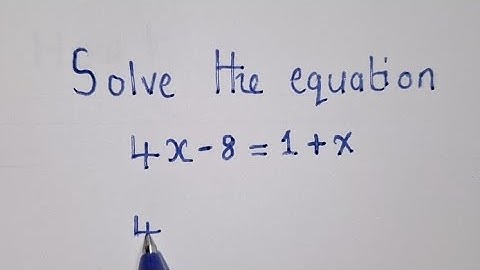 Solve the equation
4x - 8 = 1 + x
4